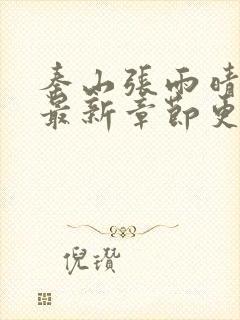 秦山張雨晴
最新章節更
倪瓚